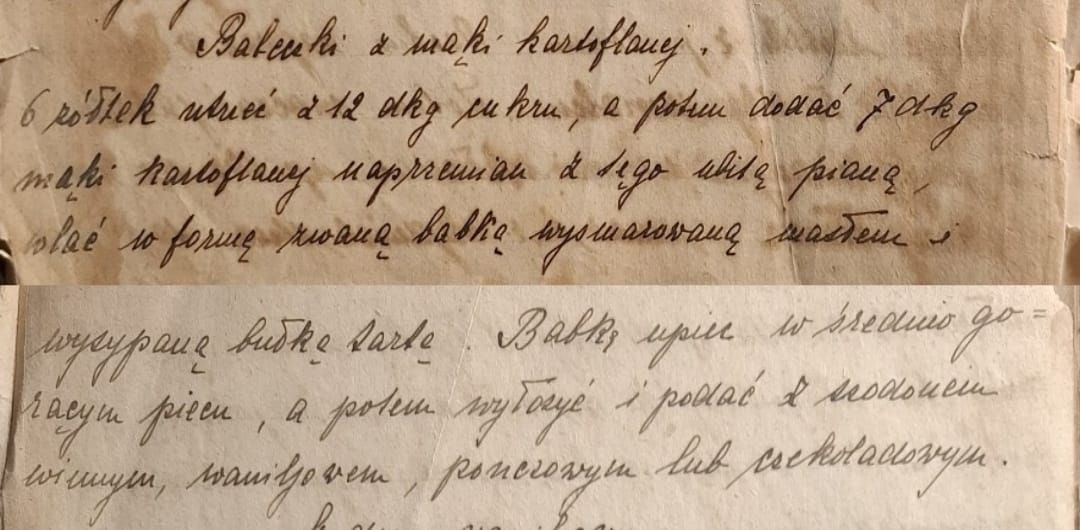 Babeczki z mąki kartoflanej.
6 żółtek utrzeć z 12 dkg cukru, a potem dodać 7 dkg
mąki kartoflanej naprzemian z tęgo ubitą pianą,
wlać w formę zwaną babką wysmarowaną masłem i
wysypaną bułką tartą. Babkę upiec w średnio go=
rącym piecu, a potem wyłożyć i podać z szodonem
winnym, waniljowem, ponczowym lub czekoladowym.